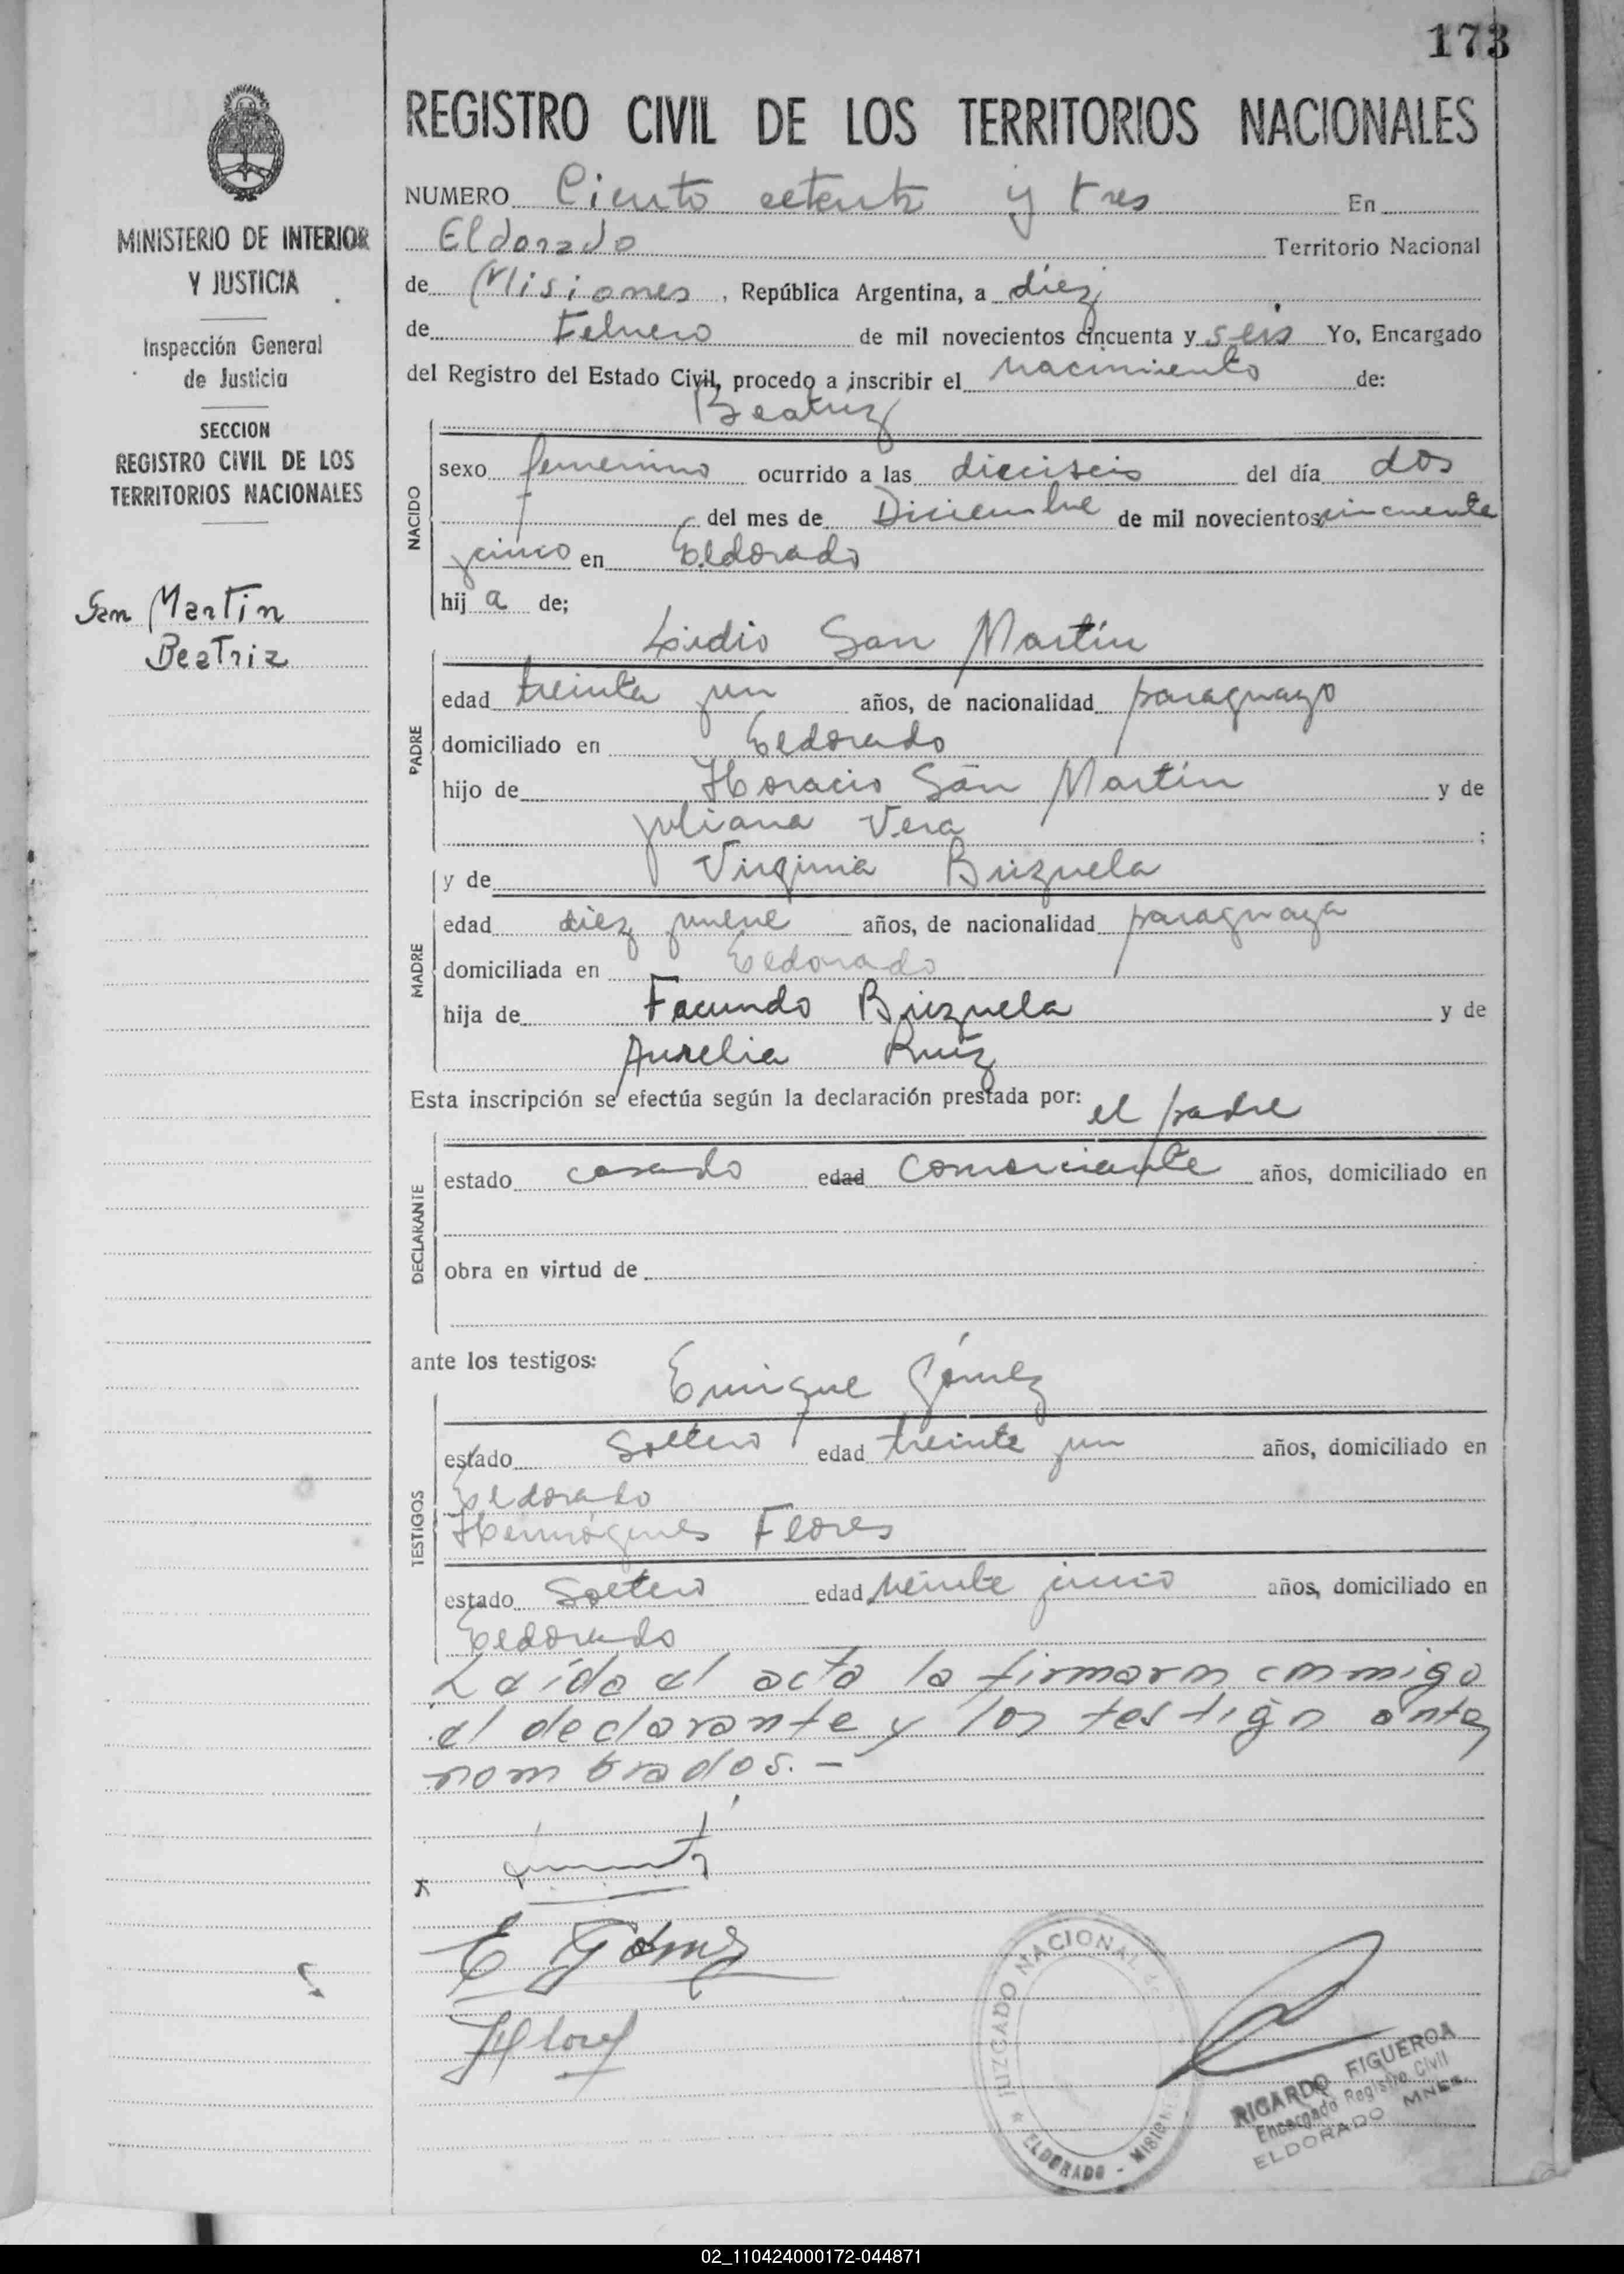 173
REGISTRO CIVIL DE LOS TERRITORIOS NACIONALES
MINISTERIO DE INTERIOR
Y JUSTICIA
Inspección General
de Justicia
SECCION
REGISTRO CIVIL DE LOS
TERRITORIOS NACIONALES
San Martin
Beatriz
NUMERO Ciento setenta y tres En
Eldorado Territorio Nacional
de Misiones, República Argentina, a diez
de Febrero de mil novecientos cincuenta y seis Yo, Encargado
del Registro del Estado Civil, procedo a inscribir el nacimiento de:
Beatriz
NACIDO
sexo femenino ocurrido a las dieciseis del día dos
del mes de Diciembre de mil novecientos cincuenta
ycinco en Eldorado
hij a de;
Lidio San Martín
PADRE
edad treinta yun años, de nacionalidad paraguayo
domiciliado en Eldorado
hijo de Horacio San Martín y de
Juliana Vera ;
y de Virginia Brizuela
MADRE
edad diez ynueve años, de nacionalidad paraguaya
domiciliada en Eldorado
hija de Facundo Brizuela y de
Aurelia Ruiz
Esta inscripción se efectúa según la declaración prestada por: el padre
DECLARANTE
estado casado edad comerciante años, domiciliado en
obra en virtud de
ante los testigos: Enrique Gómez
TESTIGOS
estado Soltero edad treinta yun años, domiciliado en
Eldorado
Hermógenes Flores
estado Soltero edad veinte ycinco años, domiciliado en
Eldorado
Leída el acta la firmaron conmigo
el declarante y los testigos antes
nombrados.-
x
E Gómez
HFlores
JUZGADO NACIONAL DE
ELDORADO - MISIONES
RICARDO FIGUEROA
Encargado Registro Civil
ELDORADO MNES.
02_110424000172-044871